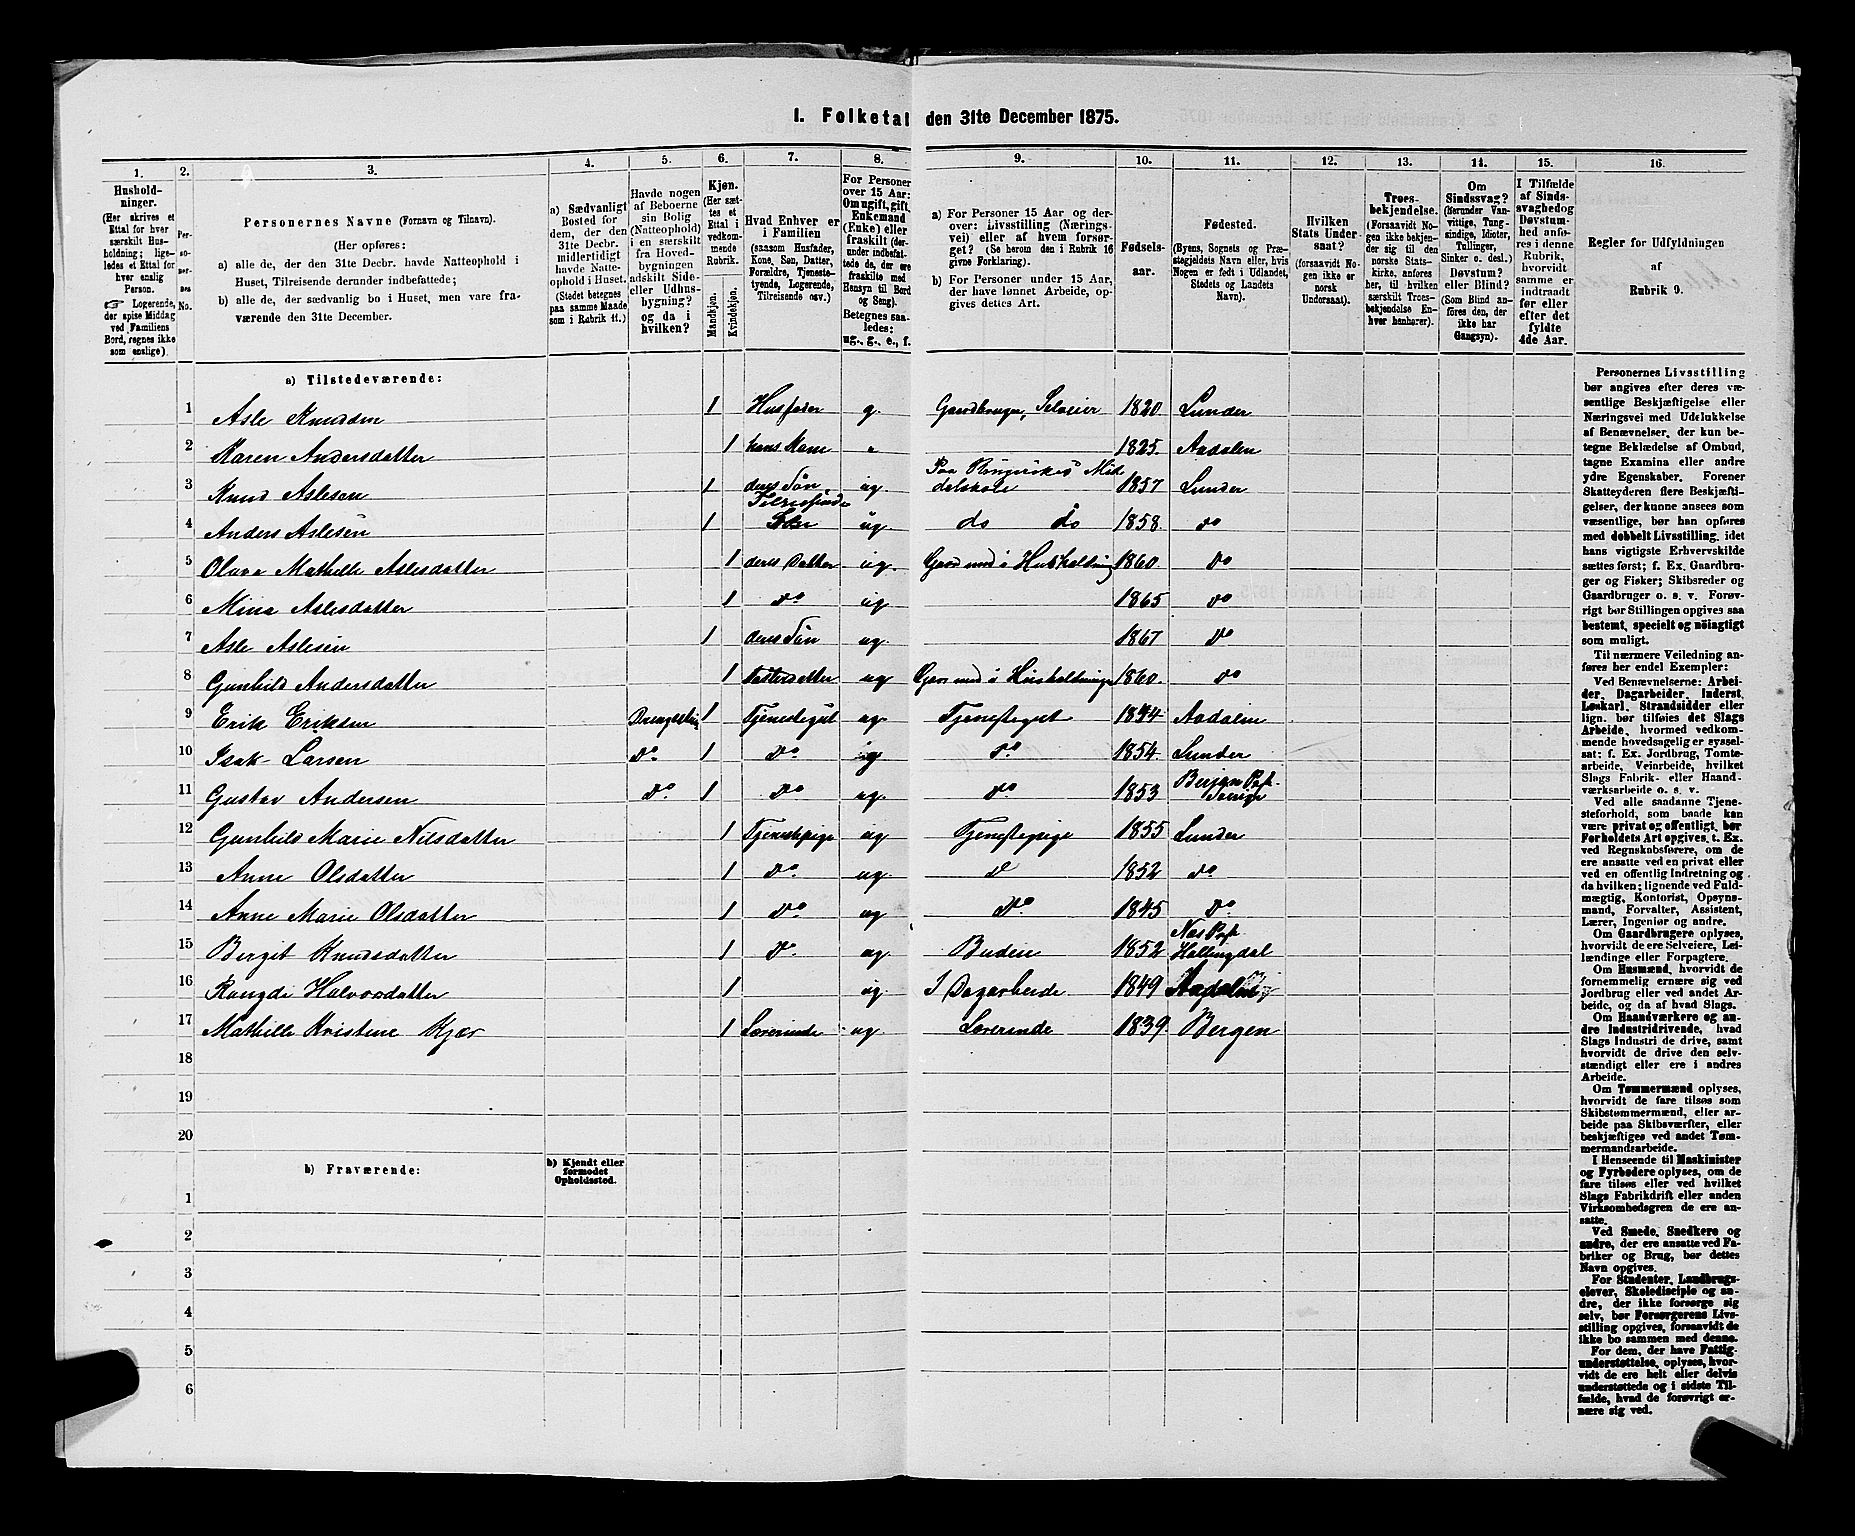 1. Folketal den 31te December 1875.
1. 2. 3. 4. 5. 6. 7. 8. 9. 10. 11. 12. 13. 14. 15. 16.
Hushold-
ninger.
(Her skrives et
Ettal for hver
særskilt Hus-
holdning; lige-
ledes et Ettal for
hver enslig
Person.
☞ Logerende,
der spise Middag
ved Familiens
Bord, regnes ikke
som enslige).
Per-
so-
ner-
nes
No.
Personernes Navne (Fornavn og Tilnavn).
(Her opføres:
a) alle de, der den 31te Decbr. havde Natteophold i
Huset, Tilreisende derunder indbefattede;
b) alle de, der sædvanlig bo i Huset, men vare fra-
værende den 31te December.
a) Sædvanligt
Bosted for
dem, der den
31te Decbr.
midlertidigt
havde Natte-
ophold i Huset.
(Stedet betegnes
paa samme Maade
som i Rubrik 11.)
Havde nogen
af Beboerne
sin Bolig
(Natteophold)
i en særskilt
fra Hoved-
bygningen
adskilt Side-
eller Udhus-
bygning?
og da i
hvilken?
Kjøn.
(Her sæt-
tes et
Ettal i
vedkom-
mende
Rubrik.
Mandkjøn.
Kvindekjøn.
Hvad Enhver er
i Familien
(saasom Husfader,
Kone, Søn, Datter,
Forældre, Tjeneste-
tyende, Logerende,
Tilreisende osv.)
For Personer
over 15 Aar:
Om ugift, gift,
Enkemand
(Enke) eller
fraskilt (der-
under indbefat-
tede de, der ere
fraskilte med
Hensyn til Bord
og Seng).
Betegnes saa-
ledes:
ug., g., e., f.
a) For Personer 15 Aar og der-
over: Livsstilling (Nærings-
vei) eller af hvem forsør-
get? (Se herom den i Rubrik 16
givne Forklaring).
b) For Personer under 15 Aar,
der have lønnet Arbeide, op-
gives dettes Art.
Fødsels-
aar.
Fødested.
(Byens, Sognets og Præ-
stegjeldets Navn eller, hvis
Nogen er født i Udlandet,
Stedets og Landets
Navn).
Hvilken
Stats Under-
saat?
(forsaavidt No-
gen ikke er
norsk
Undersaat).
Troes-
bekjendelse.
(Forsaavidt No-
gen ikke bekjen-
der sig til den
norske Stats-
kirke, anføres
her, til hvilken
særskilt Troes-
bekjendelse En-
hver henhører).
Om
Sindssvag?
(Herunder Van-
vittige, Tung-
sindige, Idioter,
Tullinger,
Sinker o. desl.)
Døvstum?
eller Blind?
(Som Blind an-
føres den, der
ikke har
Gangsyn).
I Tilfælde
af Sinds-
svaghed og
Døvstum-
hed anfø-
res i denne
Rubrik,
hvorvidt
samme er
indtraadt
før eller
efter det
fyldte
4de Aar.
Regler for Udfyldningen
af
Rubrik 9.
a) Tilstedeværende:
1 Asle Knudsen 1 Husfader g. Gaardbruger, Selveier 1820 Lunder
2 Karen Andersdatter 1 hans Kone " 1825. Aadalen
3 Knud Aslesen 1 deres Søn ug. Paa Ringerikes Mid
delskole 1857 Lunder
4 Anders Aslesen 1 ug do do 1858. do
5 Olava Mathilde Aslesdatter 1 deres Datter ug. Gaar med i Husholdning 1860 do
6 Mina Aslesdatter 1 do ug 1865 do
7 Asle Aslesen 1 deres Søn ug. 1867 do
8 Gunhild Andersdatter 1 ug Gaar med i Husholdningen 1860. do
9 Erik Eriksen 1 Tjenestegut ug Tjenestegut 1844 Aadalen
10 Isak Larsen do 1 do ug do 1854. Lunder
11 Gustav Andersen do. 1 do ug. do. 1853
12 Gunhild Marie Nilsdatter 1 Tjenestepige ug Tjenestepige 1855 Lunder
13 Anne Olsdatter 1 do. ug. do 1852 do
14 Anne Marie Olsdatter 1 do. ug do. 1845 do.
15 Bergit Knudsdatter 1 do. ug Budeie 1852 Næs Pgf.
Hallingdal
16 Rangdi Halvorsdatter 1 ug I Dagarbeide 1849 Aadalen
17 Mathilde Kristine Kjær 1 Lærerinde ug Lærerinde 1839. Bergen
18
19
20
b) Fraværende:
b) Kjendt eller
formodet
Opholdssted.
1
2
3
4
5
6
Personernes Livsstilling
bør angives efter deres væ-
sentlige Beskjæftigelse eller
Næringsvei med Udelukkelse
af Benævnelser, der kun be-
tegne Beklædelse af Ombud,
tagne Examina eller andre
ydre Egenskaber. Forener
Skatteyderen flere Beskjæfti-
gelser, der kunne ansees som
væsentlige, bør han opføres
med dobbelt Livsstilling, idet
hans vigtigste Erhvervskilde
sættes først; f. Ex. Gaardbru-
ger og Fisker; Skibsreder og
Gaardbruger o. s. v. Forøv-
rigt bør Stillingen opgives saa
bestemt, specielt og nöiagtigt
som muligt.
Til nærmere Veiledning an-
føres her endel Exempler:
Ved Benævnelserne: Arbei-
der, Dagarbeider, Inderst,
Løskarl, Strandsidder eller
lign. bør tilføies det Slags
Arbeide, hvormed vedkom-
mende hovedsagelig er syssel-
sat; f. Ex. Jordbrug, Tomte-
arbeide, Veinarbeide, hvilket
Slags Fabrik- eller Haand-
værksarbeide o. s. v.
Ved alle saadanne Tjene-
steforhold, som baade kan
være privat og offentligt, bør
Forholdets Art opgives, t. Ex.
ved Regnskabsførere, om de
ere ansatte ved en privat eller
ved en offentlig Indretning og
da hvilken; lignende ved Fuld-
mægtig, Kontorist, Opsyns-
mand, Forvalter, Assistent,
Lærer, Ingeniør og andre.
Om Gaardbrugere oplyses,
hvorvidt de ere Selveiere, Lei-
lændinge eller Forpagtere.
Om Husmænd, hvorvidt de
fornemmelig ernære sig ved
Jordbrug eller ved andet Ar-
beide, og da af hvad Slags.
Om Haandværkere og an-
dre Industridrivende, hvad
Slags Industri de drive, samt
hvorvidt de drive den selv-
stændigt eller ere i andres
Arbeide.
Om Tømmermænd oplyses,
hvorvidt de fare tilsøs som
Skibstømmermænd, eller ar-
beide paa Skibsværfter, eller
beskjæftiges ved andet Tøm-
mermandsarbeide.
I Henseende til Maskinister
og Fyrbødere oplyses, om de
fare tilsøs eller ved hvilket
Slags Fabrikdrift eller anden
Virksomhedsgren de ere an-
satte.
Ved Smede, Snedkere og
andre, der ere ansatte ved Fa-
briker og Brug, bør dettes
Navn opgives.
For Studenter, Landbrugs-
elever, Skoledisciple og an-
dre, der ikke forsørge sig
selv, bør Forsørgerens Livs-
stilling opgives, forsaavidt de
ikke bo sammen med denne.
For dem, der have Fattig-
understøttelse, oplyses, hvor-
vidt de ere helt eller delvis
understøttede og i sidste Til-
fælde, hvad de forøvrigt er-
nære sig ved.